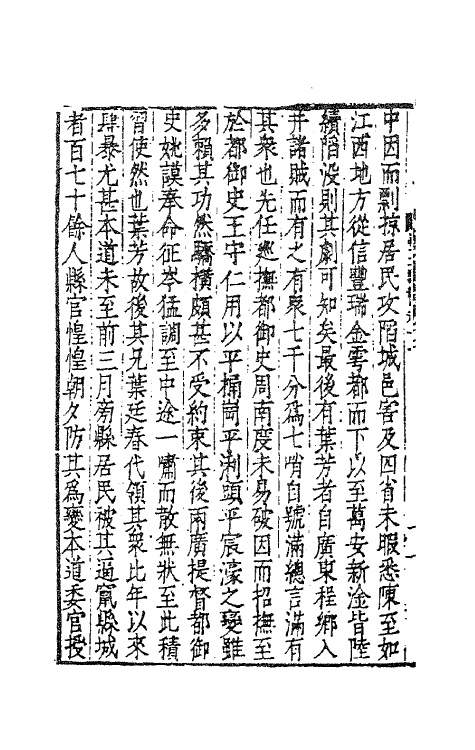 中因而剽掠居民攻陷城邑害及四省未暇悉陳至如
江西地方從信豐瑞金雩都而下以至萬安新淦皆陸
續陷没則其劇可知矣最後有葉芳者自廣東程鄉入
并諸賊而有之有衆七千分爲七哨自號滿總言滿有
其衆也先任巡撫都御史周南度未易破因而招撫至
於都御史王守仁用以平桶岡平浰頭平宸濠之變雖
多賴其功然驕橫頗甚不受約束其後兩廣提督都御
史姚謨奉命征岑猛調至中途一嘯而散無狀至此積
習使然也葉芳故後其兄葉廷春代領其衆比年以來
肆暴尤甚本道未至前三月旁縣居民被其逼竄縣城
者百七十餘人縣官惶惶朝夕防其爲變本道委官授